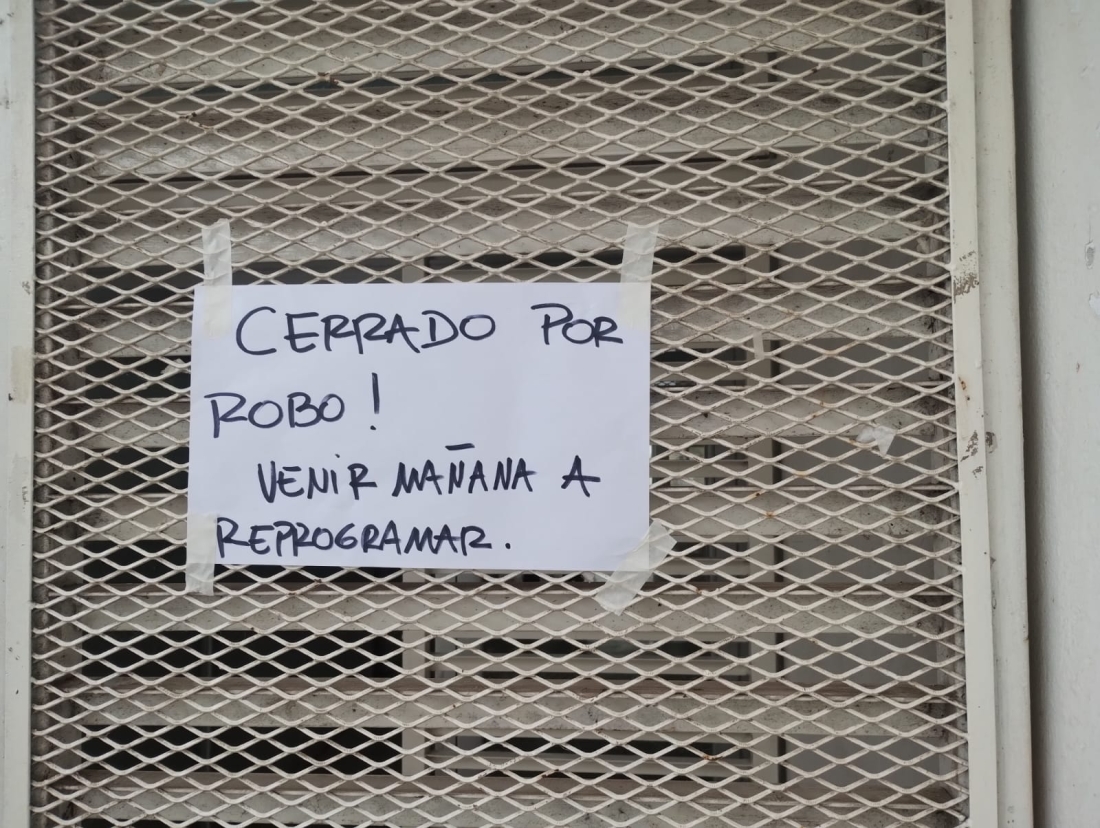 CERRADO POR
ROBO!
VENIR MAÑANA A
REPROGRAMAR.